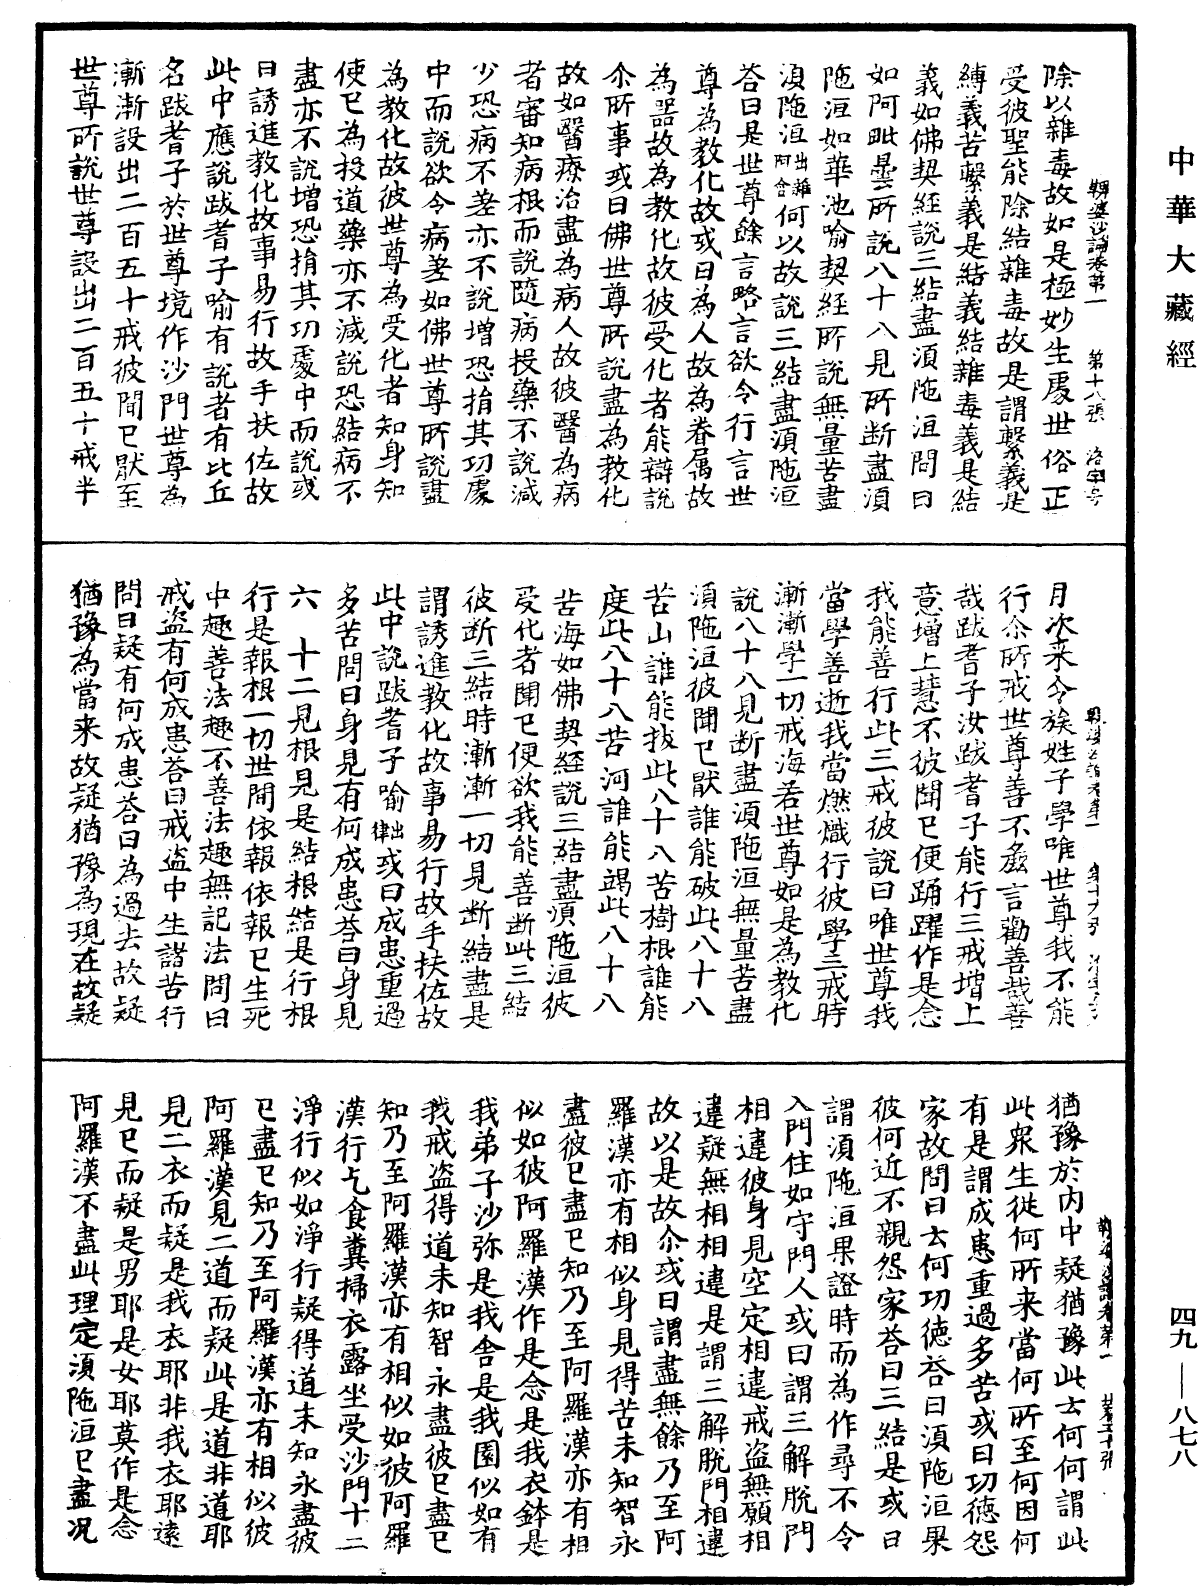 中華大藏經
四九—八七八
鞞婆沙論卷第一　第十八張　洛字号
除以雜毒故如是極妙生處世俗正
受彼聖能除結雜毒故是謂繫義是
縛義苦繫義是結義結雜毒義是結
義如佛契經說三結盡須陁洹問曰
如阿毗曇所說八十八見所斷盡須
陁洹如華池喻契經所說無量苦盡
須陁洹出雜阿含何以故說三結盡須陁洹
荅曰是世尊餘言略言欲令行言世
尊為教化故或曰為人故為眷属故
為器故為教化故彼受化者能辯說
尒所事或曰佛世尊所說盡為教化
故如醫療治盡為病人故彼醫為病
者審知病根而說隨病授藥不說減
少恐病不差亦不說增恐損其功處
中而說欲令病差如佛世尊所說盡
為教化故彼世尊為受化者知身知
使已為投道藥亦不減說恐結病不
盡亦不說增恐損其功處中而說或
曰誘進教化故事易行故手扶佐故
此中應說跋耆子喻有說者有比丘
名跋耆子於世尊境作沙門世尊為
漸漸設出二百五十戒彼聞已猒至
世尊所說世尊設出二百五十戒半
月次来令族姓子學唯世尊我不能
行尒所戒世尊善不麁言勸善哉善
哉跋耆子汝跋耆子能行三戒增上
意增上慧不彼聞已便踊躍作是念
我能善行此三戒彼說曰唯世尊我
當學善逝我當燃熾行彼學三戒時
漸漸學一切戒海若世尊如是為教化
說八十八見斷盡須陁洹無量苦盡
須陁洹彼聞已猒誰能破此八十八
苦山誰能拔此八十八苦樹根誰能
度此八十八苦河誰能竭此八十八
苦海如佛契經說三結盡須陁洹彼
受化者聞已便欲我能善斷此三結
彼斷三結時漸漸一切見斷結盡是
謂誘進教化故事易行故手扶佐故
此中說跋耆子喻出律或曰成患重過
多苦問曰身見有何成患荅曰身見
六十二見根見是結根結是行根
行是報根一切世間依報依報已生死
中趣善法趣不善法趣無記法問曰
戒盗有何成患荅曰戒盗中生諸苦行
問曰疑有何成患荅曰為過去故疑
猶豫為當来故疑猶豫為現在故疑
猶豫於內中疑猶豫此去何何謂此
此衆生從何所来當何所至何因何
有是謂成患重過多苦或曰功德怨
家故問曰云何功德荅曰須陁洹果
彼何近不親怨家荅曰三結是或曰
謂須陁洹果證時而為作尋不令
入門住如守門人或曰謂三解脫門
相違彼身見空定相違戒盗無願相
違疑無相相違是謂三解脫門相違
故以是故尒或曰謂盡無餘乃至阿
羅漢亦有相似身見得苦未知智永
盡彼已盡已知乃至阿羅漢亦有相
似如彼阿羅漢作是念是我衣鉢是
我弟子沙弥是我舍是我園似如有
我戒盗得道未知智永盡彼已盡已
知乃至阿羅漢亦有相似如彼阿羅
漢行乞食糞掃衣露坐受沙門十二
淨行似如淨行疑得道未知永盡彼
已盡已知乃至阿羅漢亦有相似彼
阿羅漢見二道而疑此是道非道耶
見二衣而疑是我衣耶非我衣耶遠
見已而疑是男耶是女耶莫作是念
阿羅漢不盡此理定須陁洹已盡况